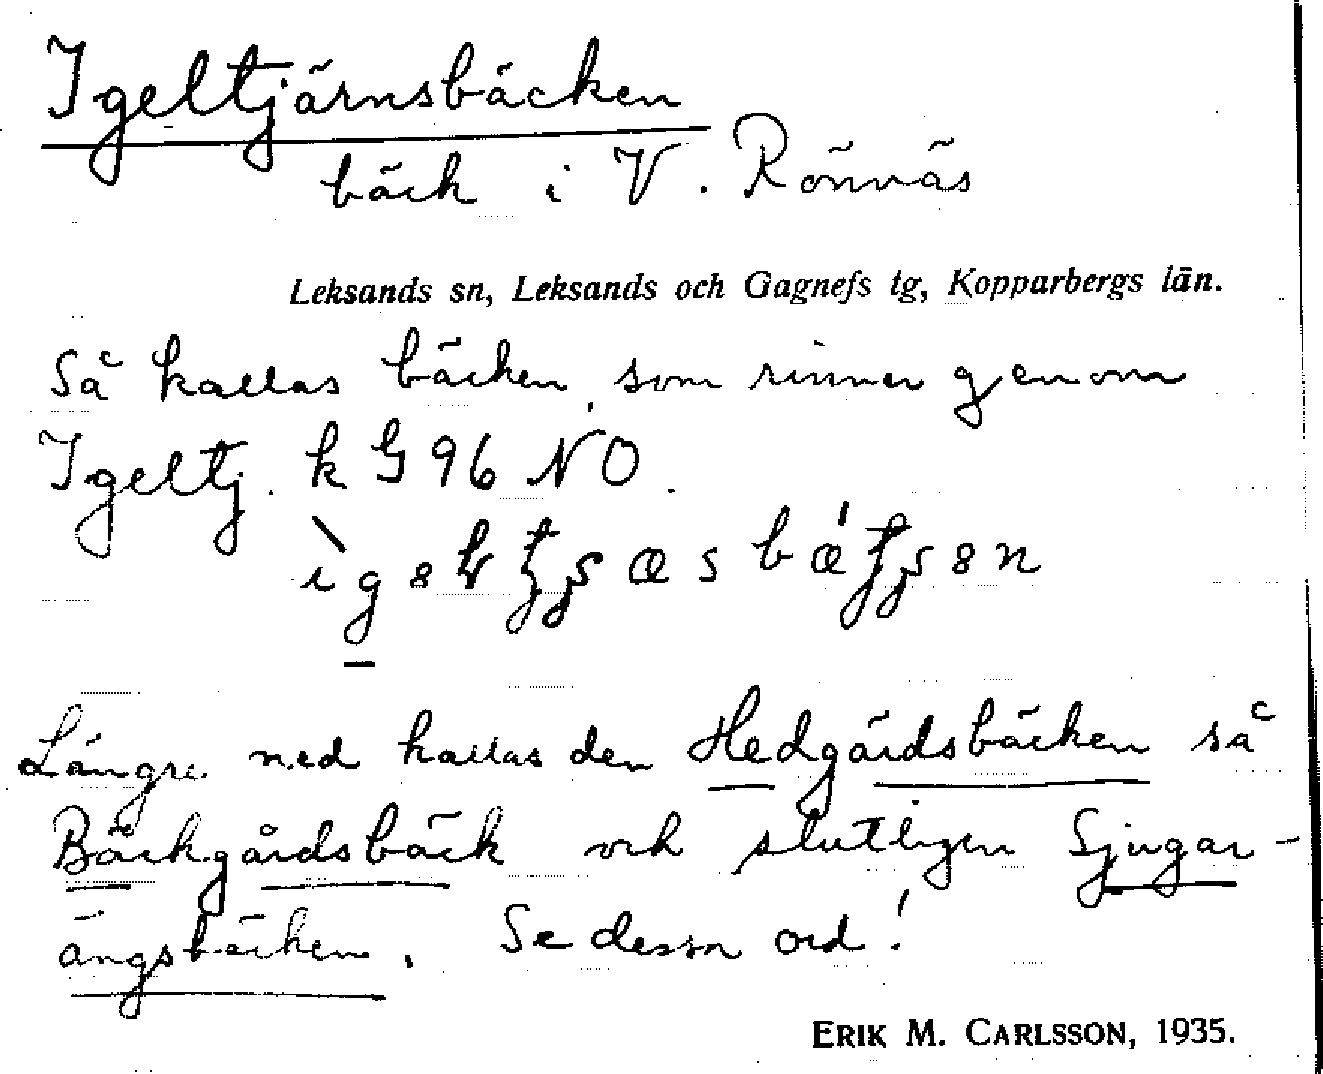 Igeltjärnsbäcken
bäck i V. Rönnäs
Leksands sn, Leksands och Gagnefs tg, Kopparbergs län.
Så kallas bäcken, som rinner genom
Igeltj. k G 96 NO.
Längre ned kallas den Hedgårdsbäcken så
Bäckgårdsbäck och slutligen Sjugar-
ängsbäcken. Se dessa ord!
ERIK M. CARLSSON, 1935.